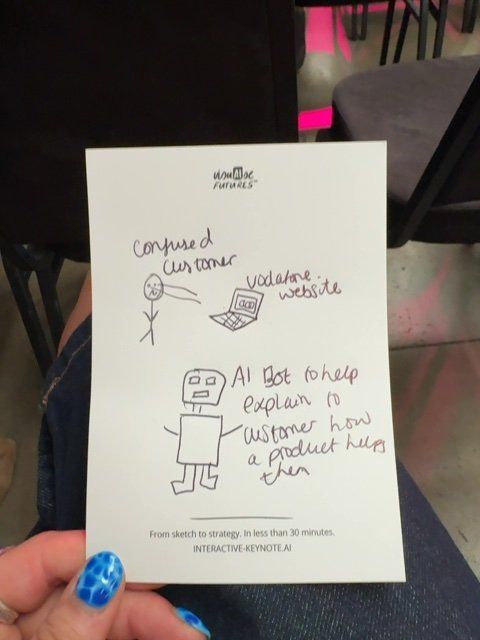 VISUAlISE
FUTURES™
confused
customer
vodafone.
website
AI Bot to help
explain to
customer how
a product helps
them
From sketch to strategy. In less than 30 minutes.
INTERACTIVE-KEYNOTE.AI